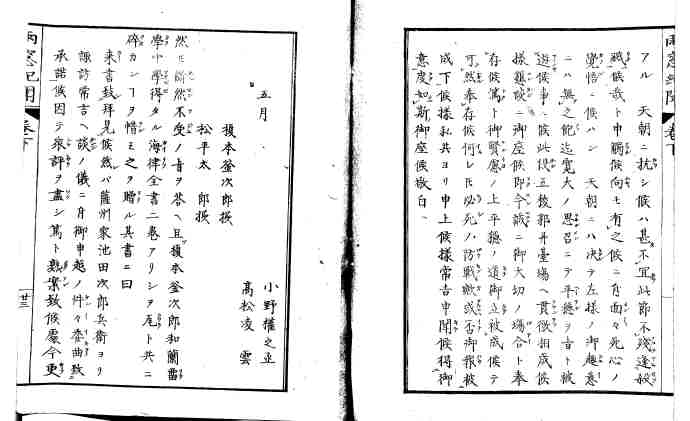 雨窓紀聞 巻下
アル 天朝ニ抗シ候ハ甚不宜此節不残逢殺
戮候哉ト申觸候向モ有之候ニ付面々死心ノ
覚悟ニ候ハン 天朝ニハ決テ左様ノ御趣意
ニハ無之飽迄寛大ノ思召ニテ平穏ヲ旨ト被
遊候事ニ候此段五稜郭并臺場ヘ貫徹相成候
様篤候ニ御座候即今誠ニ御大切ノ場合ト奉
存候篤ト御賢慮ノ上平穏ノ道御立被成候テ
可然奉存候何レ氏必死ノ防戦歟或否御報被
成下候様私共ヨリ申上候様常吉申聞候得御
意度如斯御座候敬白
五月 小野權之丞
高松凌雲
榎本釜次郎様
松平太郎様
然ニ斷然不受ノ旨ヲ答ヘ且榎本釜次郎和蘭留
學中學得タル海律全書二巻アリシヲ瓦ト共ニ
碎カンヿヲ惜ミ之ヲ贈ル其書ニ曰
来書致拝見候然バ薩州家池田次郎兵衛ヨリ
諏訪常吉ヘ談ノ儀ニ付御申越ノ件々委曲致
承諾候因テ衆評ヲ盡シ篤ト熟案致候處今更
雨窓紀聞 巻下 廿三